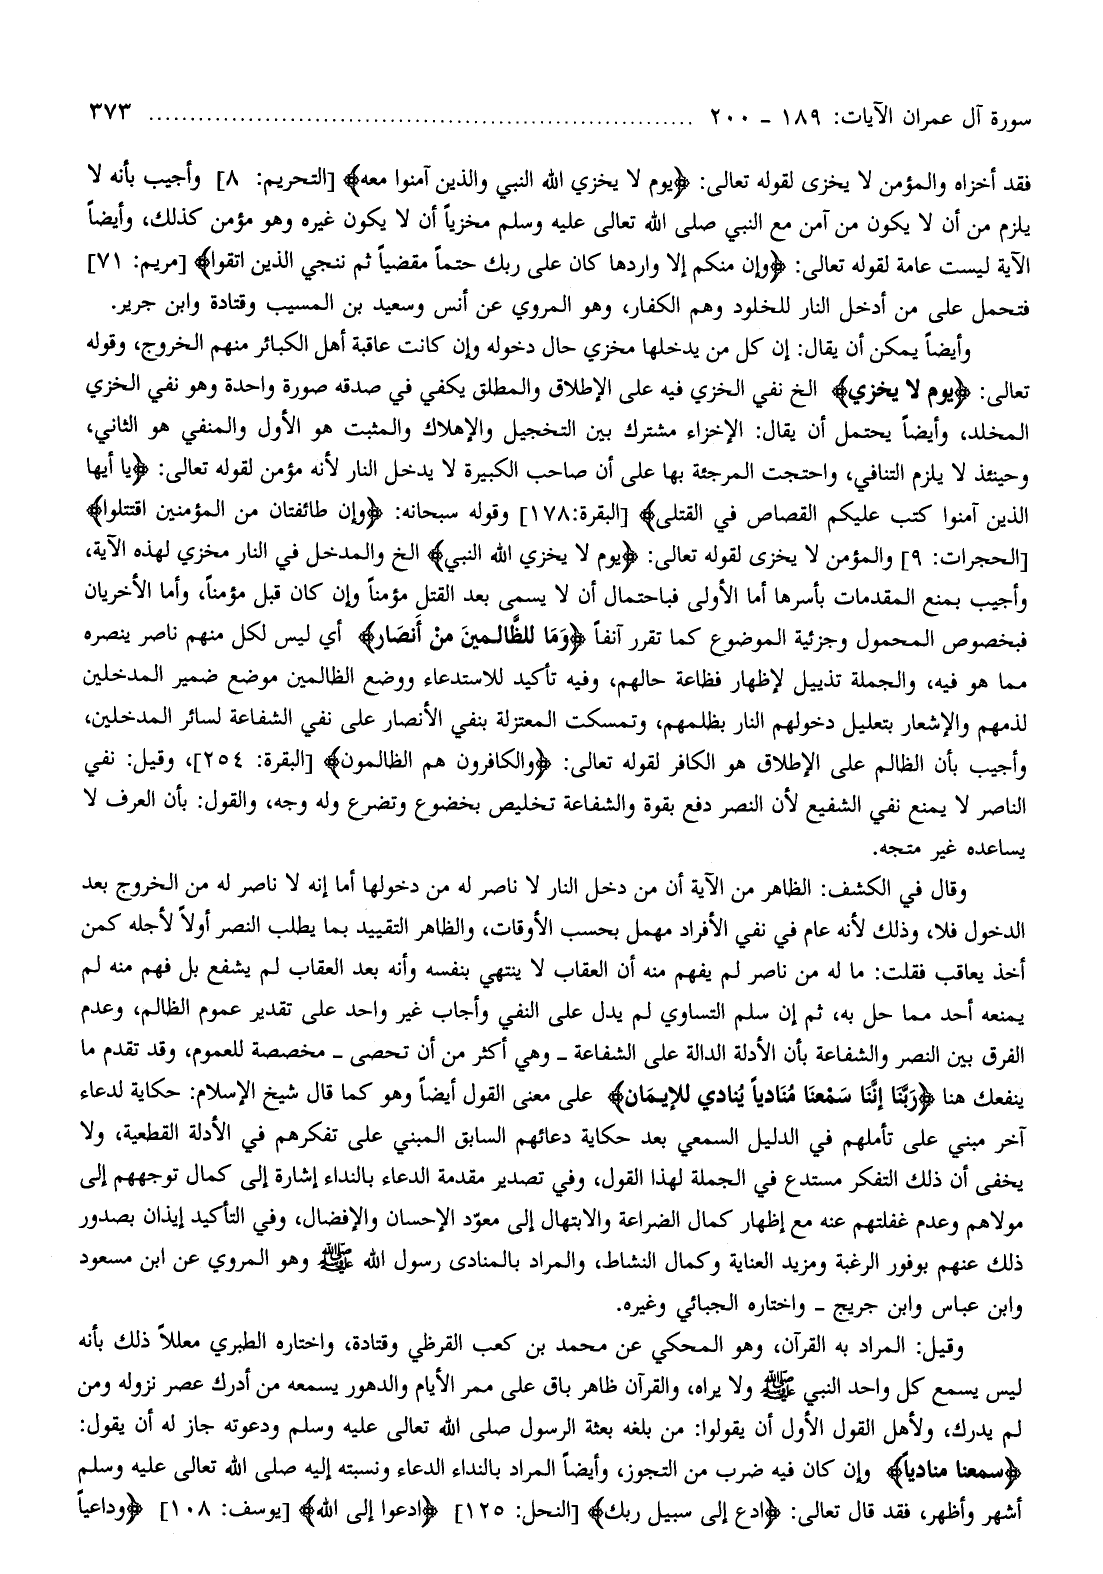 سورة آل عمران الآيات: ١٨٩ - ٢٠٠ ................................................................ ٣٧٣
فقد أخزاه والمؤمن لا يخزى لقوله تعالى: ﴿يوم لا يخزي الله النبي والذين آمنوا معه﴾ [التحريم: ٨] وأجيب بأنه لا
يلزم من أن لا يكون من آمن مع النبي صلى الله تعالى عليه وسلم مخزياً أن لا يكون غيره وهو مؤمن كذلك، وأيضاً
الآية ليست عامة لقوله تعالى: ﴿وإن منكم إلا واردها كان على ربك حتماً مقضياً ثم ننجي الذين اتقوا﴾ [مريم: ٧١]
فتحمل على من أدخل النار للخلود وهم الكفار، وهو المروي عن أنس وسعيد بن المسيب وقتادة وابن جرير.
وأيضاً يمكن أن يقال: إن كل من يدخلها مخزي حال دخوله وإن كانت عاقبة أهل الكبائر منهم الخروج، وقوله
تعالى: ﴿يوم لا يخزي﴾ الخ نفي الخزي فيه على الإطلاق والمطلق يكفي في صدقه صورة واحدة وهو نفي الخزي
المخلد، وأيضاً يحتمل أن يقال: الإخزاء مشترك بين التخجيل والإهلاك والمثبت هو الأول والمنفي هو الثاني،
وحينئذ لا يلزم التنافي، واحتجت المرجئة بها على أن صاحب الكبيرة لا يدخل النار لأنه مؤمن لقوله تعالى: ﴿يا أيها
الذين آمنوا كتب عليكم القصاص في القتلى﴾ [البقرة:١٧٨] وقوله سبحانه: ﴿وإن طائفتان من المؤمنين اقتتلوا﴾
[الحجرات: ٩] والمؤمن لا يخزى لقوله تعالى: ﴿يوم لا يخزي الله النبي﴾ الخ والمدخل في النار مخزي لهذه الآية،
وأجيب بمنع المقدمات بأسرها أما الأولى فباحتمال أن لا يسمى بعد القتل مؤمناً وإن كان قبل مؤمناً، وأما الأخريان
فبخصوص المحمول وجزئية الموضوع كما تقرر آنفاً ﴿وَمَا للظَّالمينَ منْ أَنصَار﴾ أي ليس لكل منهم ناصر ينصره
مما هو فيه، والجملة تذييل لإظهار فظاعة حالهم، وفيه تأكيد للاستدعاء ووضع الظالمين موضع ضمير المدخلين
لذمهم والإشعار بتعليل دخولهم النار بظلمهم، وتمسكت المعتزلة بنفي الأنصار على نفي الشفاعة لسائر المدخلين،
وأجيب بأن الظالم على الإطلاق هو الكافر لقوله تعالى: ﴿والكافرون هم الظالمون﴾ [البقرة: ٢٥٤]، وقيل: نفي
الناصر لا يمنع نفي الشفيع لأن النصر دفع بقوة والشفاعة تخليص بخضوع وتضرع وله وجه، والقول: بأن العرف لا
يساعده غير متجه.
وقال في الكشف: الظاهر من الآية أن من دخل النار لا ناصر له من دخولها أما إنه لا ناصر له من الخروج بعد
الدخول فلا، وذلك لأنه عام في نفي الأفراد مهمل بحسب الأوقات، والظاهر التقييد بما يطلب النصر أولاً لأجله كمن
أخذ يعاقب فقلت: ما له من ناصر لم يفهم منه أن العقاب لا ينتهي بنفسه وأنه بعد العقاب لم يشفع بل فهم منه لم
يمنعه أحد مما حل به، ثم إن سلم التساوي لم يدل على النفي وأجاب غير واحد على تقدير عموم الظالم، وعدم
الفرق بين النصر والشفاعة بأن الأدلة الدالة على الشفاعة - وهي أكثر من أن تحصى - مخصصة للعموم، وقد تقدم ما
ينفعك هنا ﴿رَبَّنَا إنَّنَا سَمْعنَا مُنَادياً يُنَادي للإيمَان﴾ على معنى القول أيضاً وهو كما قال شيخ الإسلام: حكاية لدعاء
آخر مبني على تأملهم في الدليل السمعي بعد حكاية دعائهم السابق المبني على تفكرهم في الأدلة القطعية، ولا
يخفى أن ذلك التفكر مستدع في الجملة لهذا القول، وفي تصدير مقدمة الدعاء بالنداء إشارة إلى كمال توجههم إلى
مولاهم وعدم غفلتهم عنه مع إظهار كمال الضراعة والابتهال إلى معوّد الإحسان والإفضال، وفي التأكيد إيذان بصدور
ذلك عنهم بوفور الرغبة ومزيد العناية وكمال النشاط، والمراد بالمنادى رسول الله ﷺ وهو المروي عن ابن مسعود
وابن عباس وابن جريج - واختاره الجبائي وغيره.
وقيل: المراد به القرآن، وهو المحكي عن محمد بن كعب القرظي وقتادة، واختاره الطبري معللاً ذلك بأنه
ليس يسمع كل واحد النبي ﷺ ولا يراه، والقرآن ظاهر باق على ممر الأيام والدهور يسمعه من أدرك عصر نزوله ومن
لم يدرك، ولأهل القول الأول أن يقولوا: من بلغه بعثة الرسول صلى الله تعالى عليه وسلم ودعوته جاز له أن يقول:
﴿سمعنا منادياً﴾ وإن كان فيه ضرب من التجوز، وأيضاً المراد بالنداء الدعاء ونسبته إليه صلى الله تعالى عليه وسلم
أشهر وأظهر، فقد قال تعالى: ﴿ادع إلى سبيل ربك﴾ [النحل: ١٢٥] ﴿ادعوا إلى الله﴾ [يوسف: ١٠٨] ﴿وداعياً